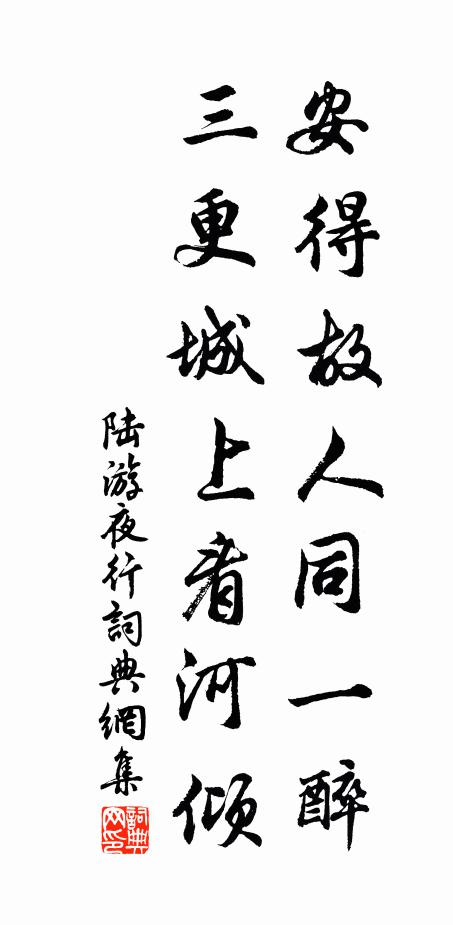 安得故人同一醉
三更城上看河傾
陆游夜行詞典網集
詞典网印